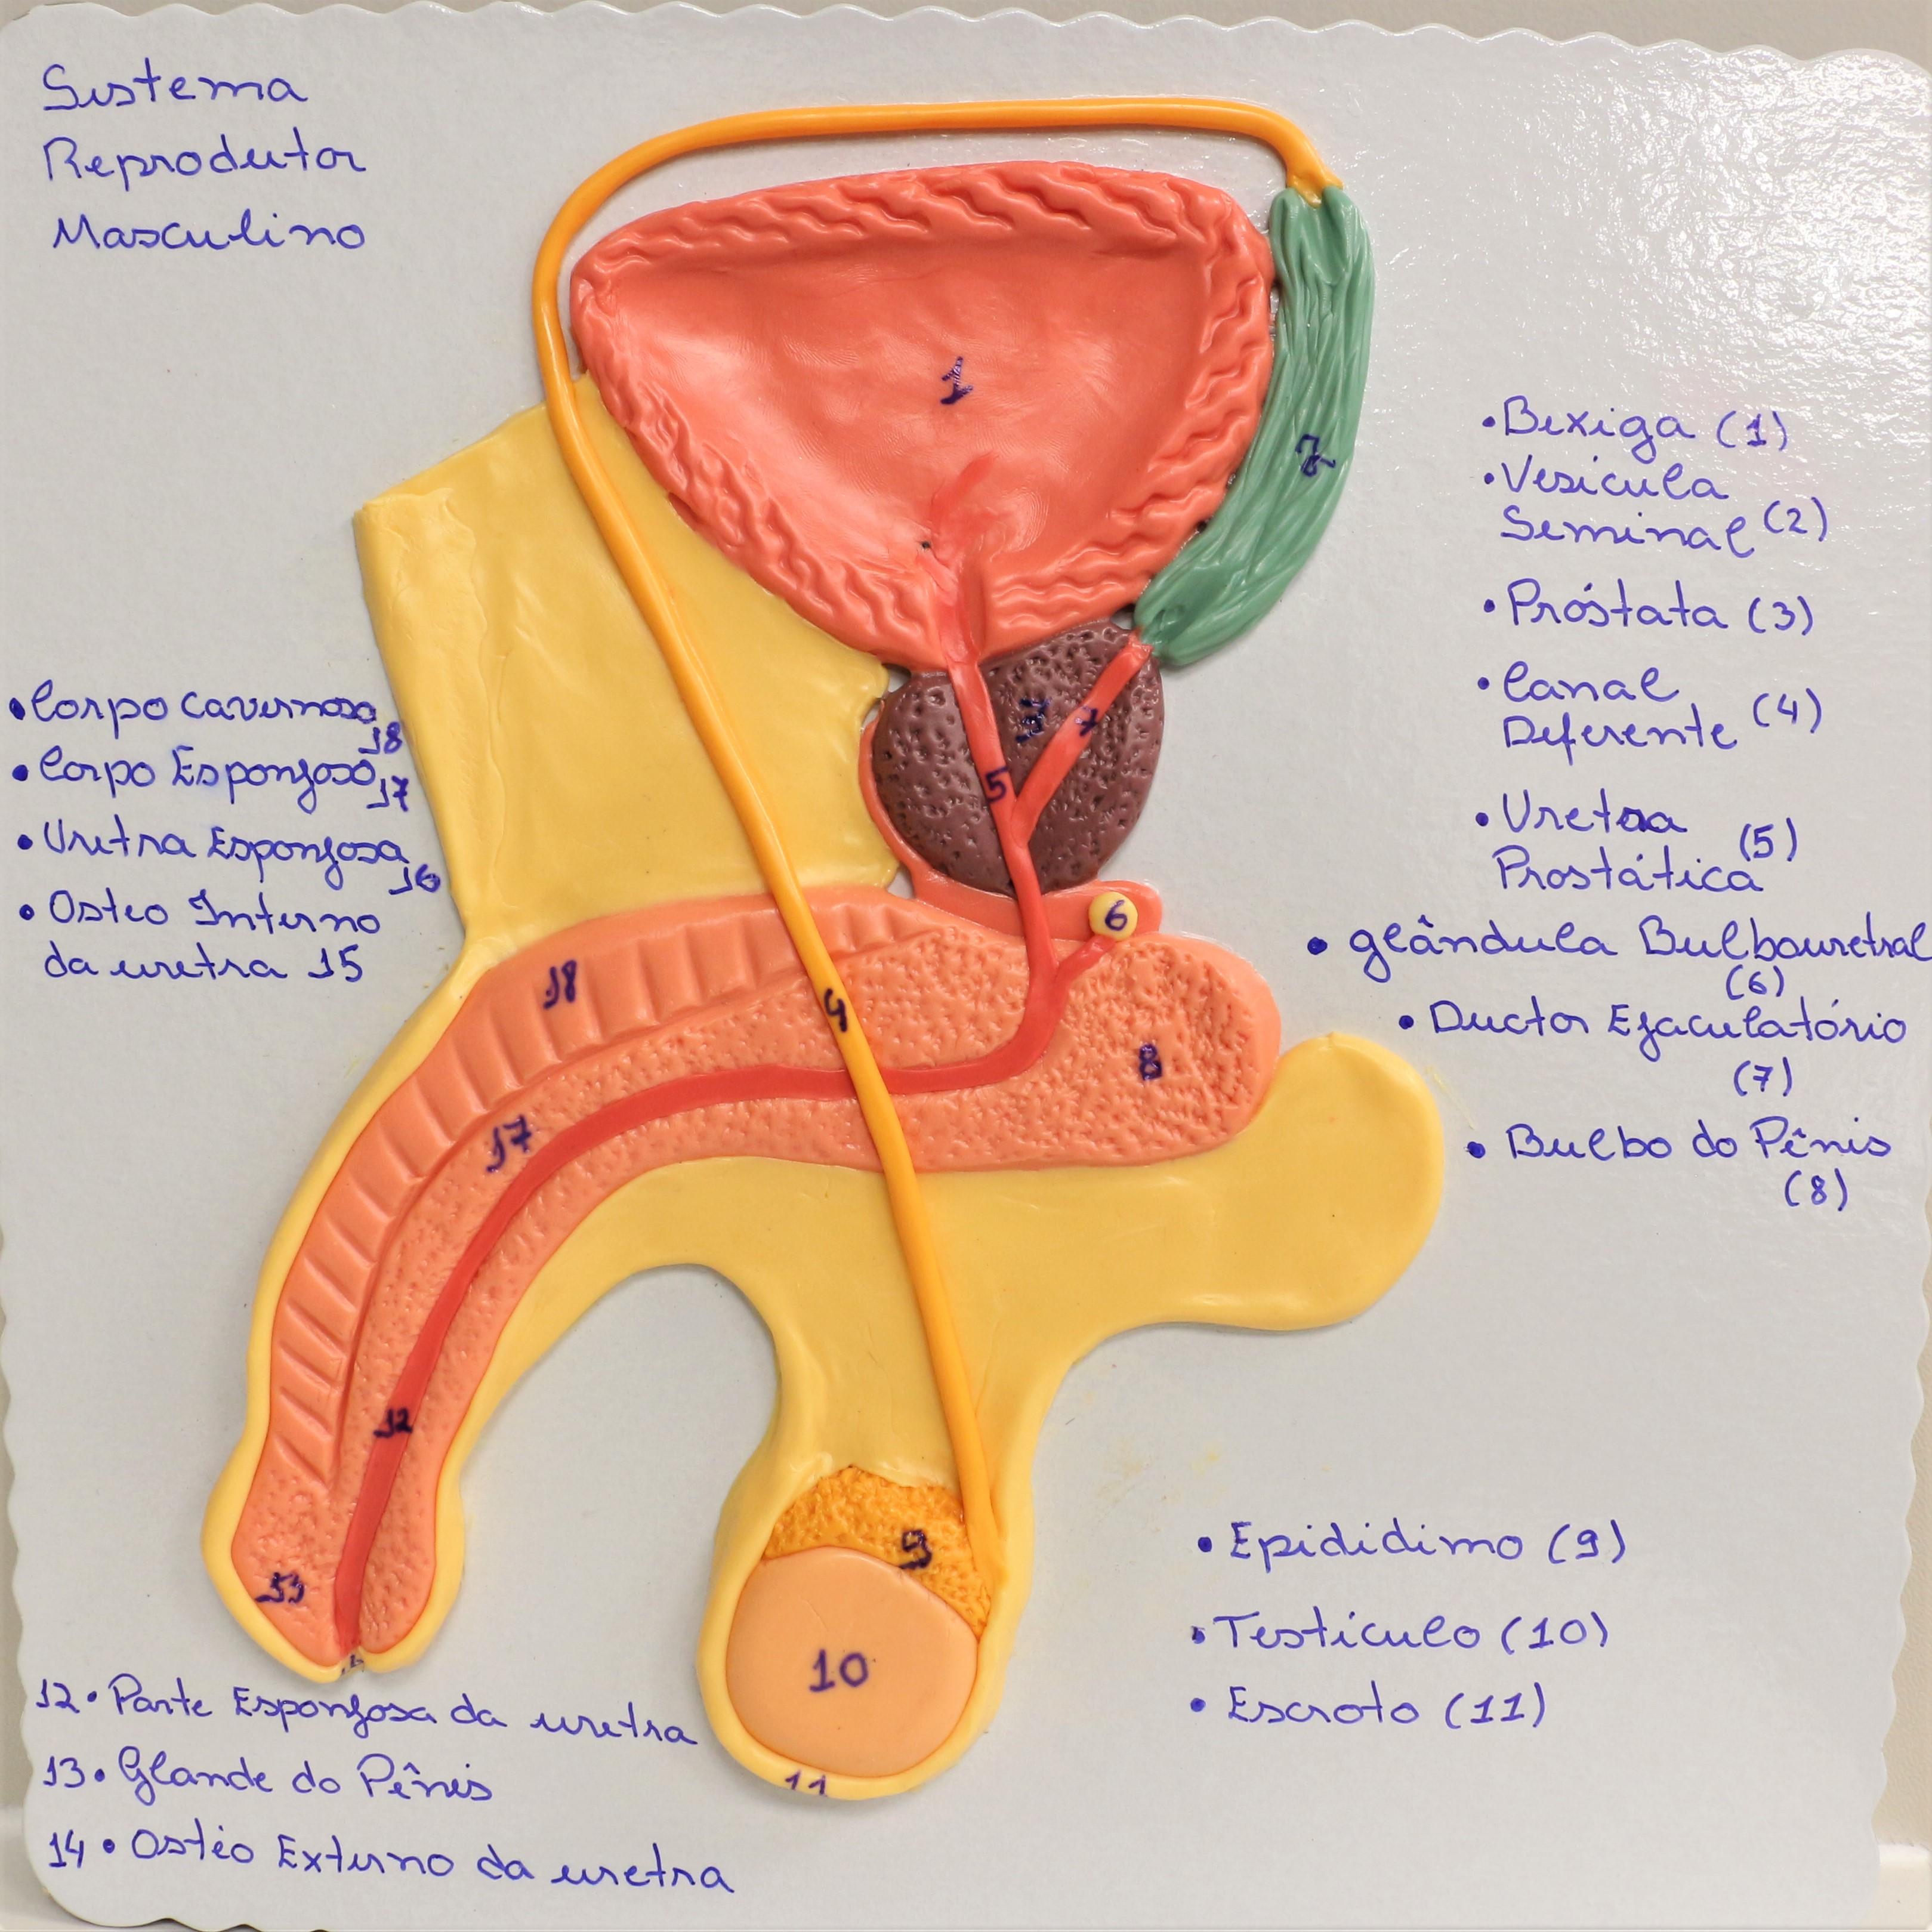 Sistema
Reprodutor
Masculino
1
2
3
7
5
6
18
4
8
17
12
9
13
10
11
•Bexiga (1)
•Vesicula
Seminal (2)
•Próstata (3)
•Canal
Deferente (4)
•Uretra
Prostática (5)
•glândula Bulbouretral
(6)
•Ductor Ejaculatório
(7)
•Bulbo do Pênis
(8)
•Corpo Cavernoso
18
•Corpo Esponjoso
17
•Uretra Esponjosa
16
•Osteo Interno
da uretra 15
•Epididimo (9)
•Testículo (10)
•Escroto (11)
12•Parte Esponjosa da uretra
13•Glande do Pênis
14•Ostéo Externo da uretra